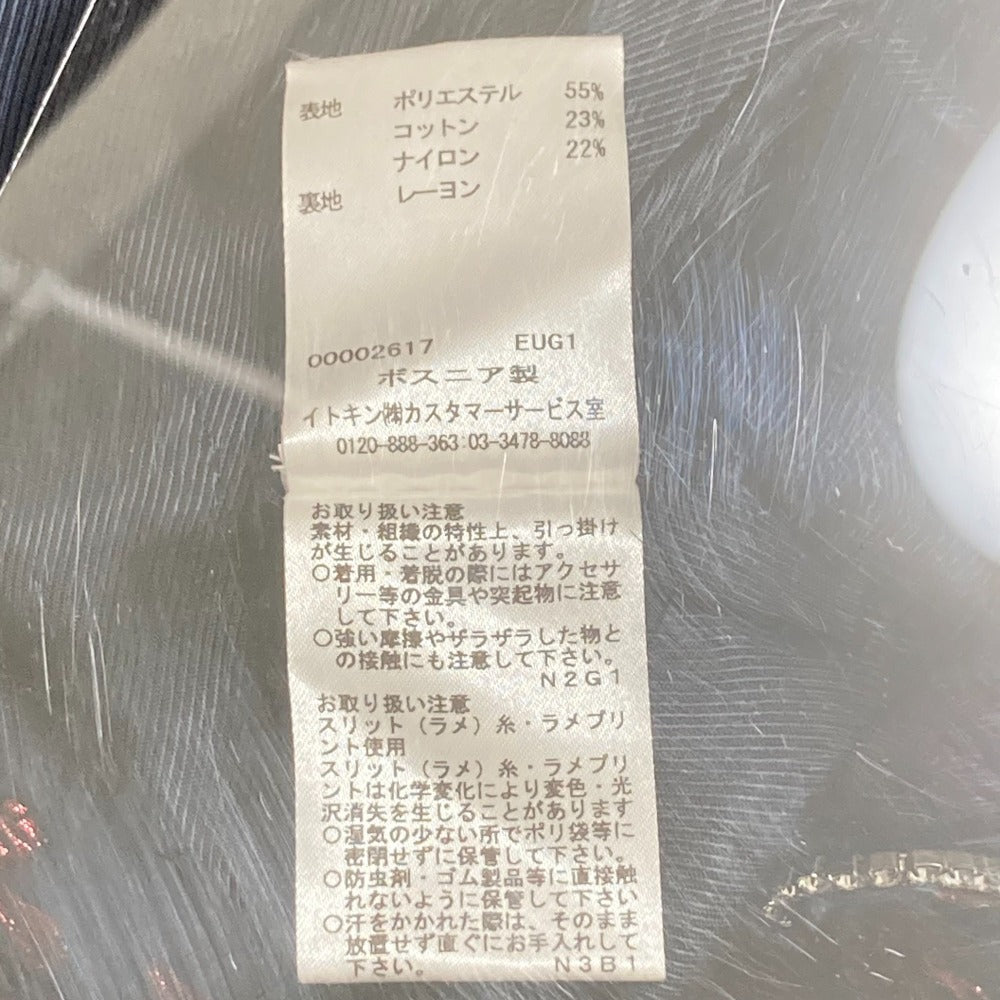 表地 ポリエステル 55%
コットン 23%
ナイロン 22%
裏地 レーヨン
00002617 EUG1
ボスニア製
イトキン㈱カスタマーサービス室
0120-888-363 03-3478-8088
お取り扱い注意
素材・組織の特性上、引っ掛け
が生じることがあります。
○着用・着脱の際にはアクセサ
リー等の金具や突起物に注意
して下さい。
○強い摩擦やザラザラした物と
の接触にも注意して下さい。
N2G1
お取り扱い注意
スリット（ラメ）糸・ラメプリ
ント使用
スリット（ラメ）糸・ラメプリ
ントは化学変化により変色・光
沢消失を生じることがあります
○湿気の少ない所でポリ袋等に
密閉せずに保管して下さい。
○防虫剤・ゴム製品等に直接触
れないように保管して下さい
○汗をかかれた際は、そのまま
放置せず直ぐにお手入れして
下さい。 N3B1